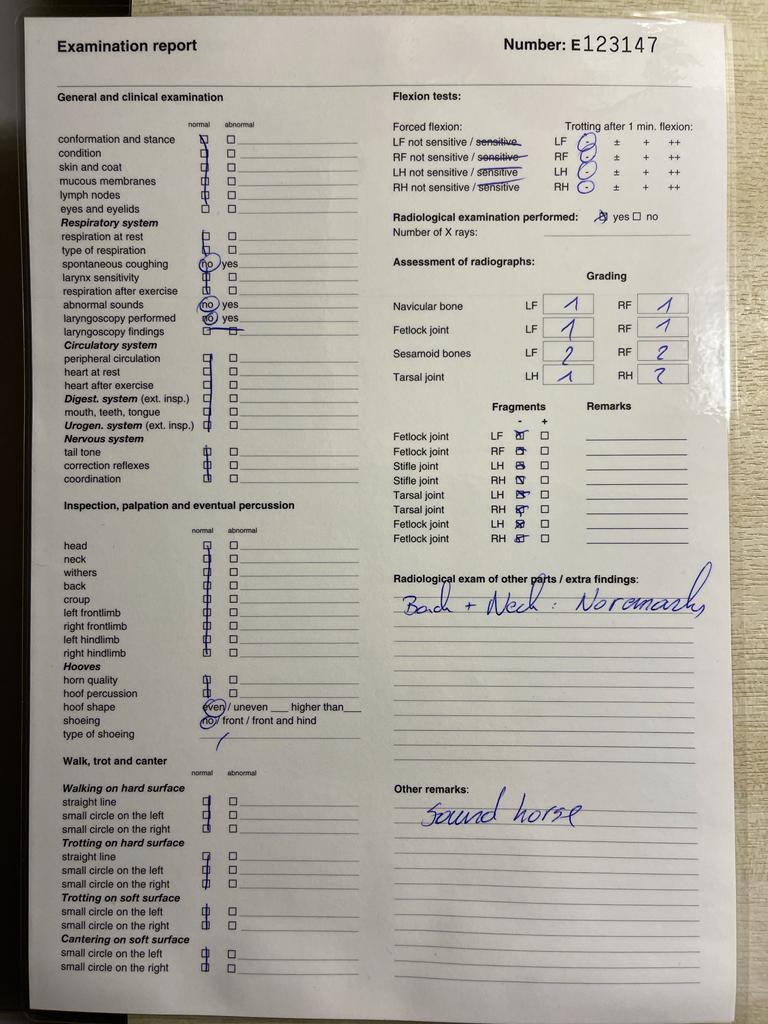 Examination report
Number: E123147
General and clinical examination
normal abnormal
conformation and stance
condition
skin and coat
mucous membranes
lymph nodes
eyes and eyelids
Respiratory system
respiration at rest
type of respiration
spontaneous coughing no yes
larynx sensitivity
respiration after exercise
abnormal sounds no yes
laryngoscopy performed no yes
laryngoscopy findings
Circulatory system
peripheral circulation
heart at rest
heart after exercise
Digest. system (ext. insp.)
mouth, teeth, tongue
Urogen. system (ext. insp.)
Nervous system
tail tone
correction reflexes
coordination
Inspection, palpation and eventual percussion
normal abnormal
head
neck
withers
back
croup
left frontlimb
right frontlimb
left hindlimb
right hindlimb
Hooves
horn quality
hoof percussion
hoof shape even / uneven ___ higher than___
shoeing no / front / front and hind
type of shoeing
Walk, trot and canter
normal abnormal
Walking on hard surface
straight line
small circle on the left
small circle on the right
Trotting on hard surface
straight line
small circle on the left
small circle on the right
Trotting on soft surface
small circle on the left
small circle on the right
Cantering on soft surface
small circle on the left
small circle on the right
Flexion tests:
Forced flexion: Trotting after 1 min. flexion:
LF not sensitive / sensitive LF - ± + ++
RF not sensitive / sensitive RF - ± + ++
LH not sensitive / sensitive LH - ± + ++
RH not sensitive / sensitive RH - ± + ++
Radiological examination performed: yes no
Number of X rays:
Assessment of radiographs:
Grading
Navicular bone LF 1 RF 1
Fetlock joint LF 1 RF 1
Sesamoid bones LF 2 RF 2
Tarsal joint LH 1 RH 2
Fragments Remarks
- +
Fetlock joint LF
Fetlock joint RF
Stifle joint LH
Stifle joint RH
Tarsal joint LH
Tarsal joint RH
Fetlock joint LH
Fetlock joint RH
Radiological exam of other parts / extra findings:
Back + Neck : No remarks
Other remarks:
Sound horse